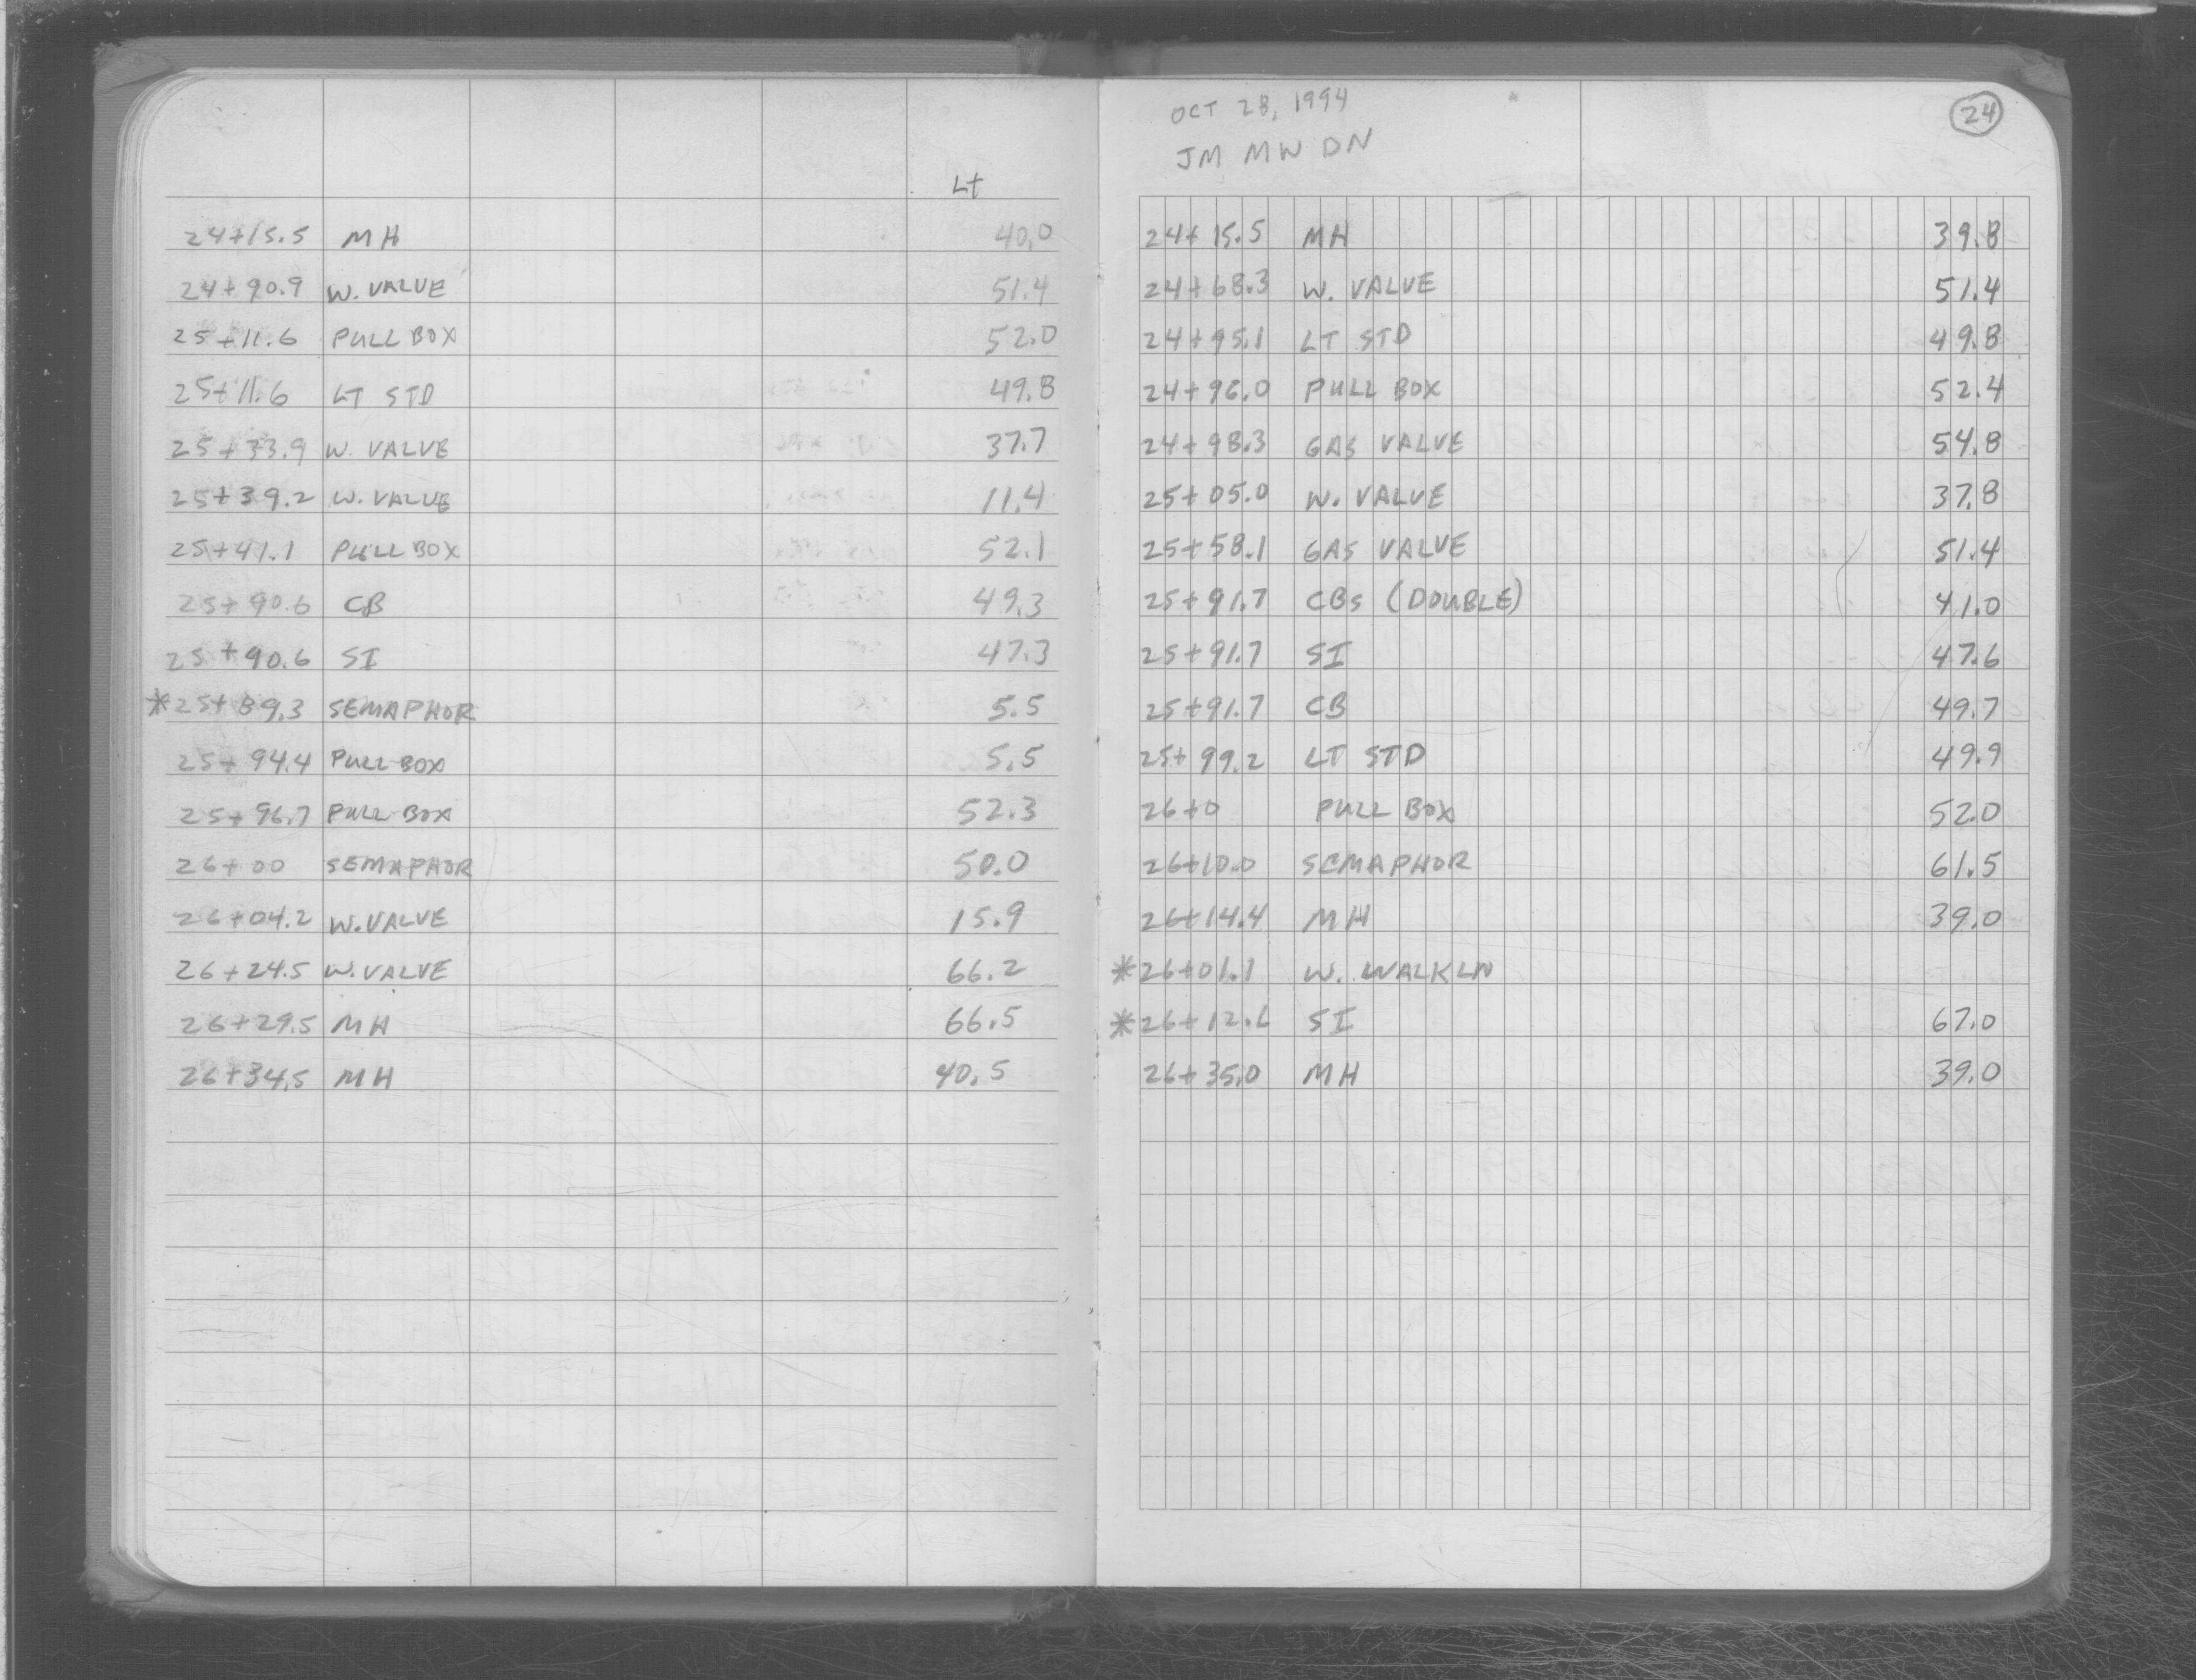 Lt
24+15.5 MH 40.0
24+90.9 W. VALVE 51.4
25+11.6 PULL BOX 52.0
25+11.6 LT STD 49.8
25+33.9 W. VALVE 37.7
25+39.2 W. VALVE 11.4
25+41.1 PULL BOX 52.1
25+90.6 CB 49.3
25+90.6 SI 47.3
*25+89.3 SEMAPHOR 5.5
25+94.4 PULL BOX 5.5
25+96.7 PULL BOX 52.3
26+00 SEMAPHOR 50.0
26+04.2 W. VALVE 15.9
26+24.5 W. VALVE 66.2
26+29.5 MH 66.5
26+34.5 MH 40.5
OCT 28, 1994
24
JM MW DN
24+15.5 MH 39.8
24+68.3 W. VALVE 51.4
24+95.1 LT STD 49.8
24+96.0 PULL BOX 52.4
24+98.3 GAS VALVE 54.8
25+05.0 W. VALVE 37.8
25+58.1 GAS VALVE 51.4
25+91.7 CBs (DOUBLE) 41.0
25+91.7 SI 47.6
25+91.7 CB 49.7
25+99.2 LT STD 49.9
26+0 PULL BOX 52.0
26+10.0 SEMAPHOR 61.5
26+14.4 MH 39.0
*26+01.1 W. WALKLN
*26+12.6 SI 67.0
26+35.0 MH 39.0